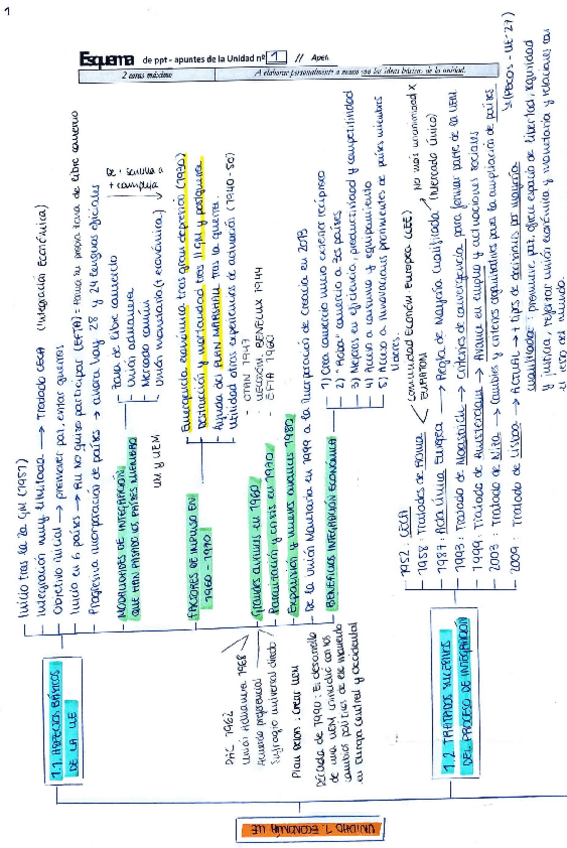 1
Esquema de ppt - apuntes de la Unidad nº 1 // Apell.
2 caras máximo
A elaborar personalmente a mano con las ideas básicas de la unidad.
UNIDAD 1. ECONOMÍA UE
1.1. ASPECTOS BÁSICOS
DE LA UE
Inicio tras la 2a GM (1951)
Integración muy limitada → Tratado CECA (Integración Económica)
Objetivo inicial → promover paz, evitar guerras
Inicio en 6 países → RU no quiso participar (EFTA) = forma su propia zona de libre comercio
Progresiva incorporación de países → ahora hay 28 y 24 lenguas oficiales
MODALIDADES DE INTEGRACIÓN
QUE HAN PASADO LOS PAÍSES MIEMBRO
Zona de libre comercio
Unión aduanera
Mercado común
Unión monetaria (+ económica)
De + sencilla a
+ compleja
UM y UEM
FACTORES DE IMPULSO EN
1960 - 1970
Emergencia económica tras gran depresión (1930)
Destrucción y mortandad tras II GM y postguerra
Ayuda del PLAN MARSHALL tras la guerra.
Utilidad otras experiencias de actuación (1940-50)
- OTAN 1947
- BENELUX 1944
- EFTA 1960
Grandes avances en 1960
PAC 1962
Unión Aduanera 1968
Acuerdo preferencial
Sufragio universal directo
Paralización y crisis en 1970
Expansión y nuevos avances 1980
Plan Delors: Crear UEM
Década de 1990: El desarrollo
de una UEM coincidió con los
cambios políticos de ese momento
en Europa Central y Occidental
De la Unión Monetaria en 1999 a la incorporación de Croacia en 2013
BENEFICIOS INTEGRACIÓN ECONÓMICA
1) Crea comercio nuevo exterior recíproco
2) comercio a 3os países
3) Mejoras en eficiencia, productividad y competitividad
4) Acceso a consumo y equipamiento
5) Acceso a innovaciones provenientes de países miembros
líderes.
1.2. TRATADOS SUCESIVOS
DEL PROCESO DE INTEGRACIÓN
1952: CECA
1958: Tratados de Roma
Comunidad Económ. Europea (CEE)
EURATOM
1987: Acta Única Europea → Regla de Mayoría Cualificada (Mercado Único)
No más unanimidad x
1993: Tratado de Maastricht → criterios de convergencia para formar parte de la UEM
1999: Tratado de Amsterdam → Avance en empleo y actuaciones sociales
2003: Tratado de Niza → Cambios y criterios para la ampliación de países
(PECOS - UE-27)
2009: Tratado de Lisboa → ACTUAL → + tipos de decisiones por mayoría
cualificada: promueve paz, ofrece espacio de libertad, seguridad
y justicia, reforzar unión económica y monetaria y relaciones con
el resto del mundo.